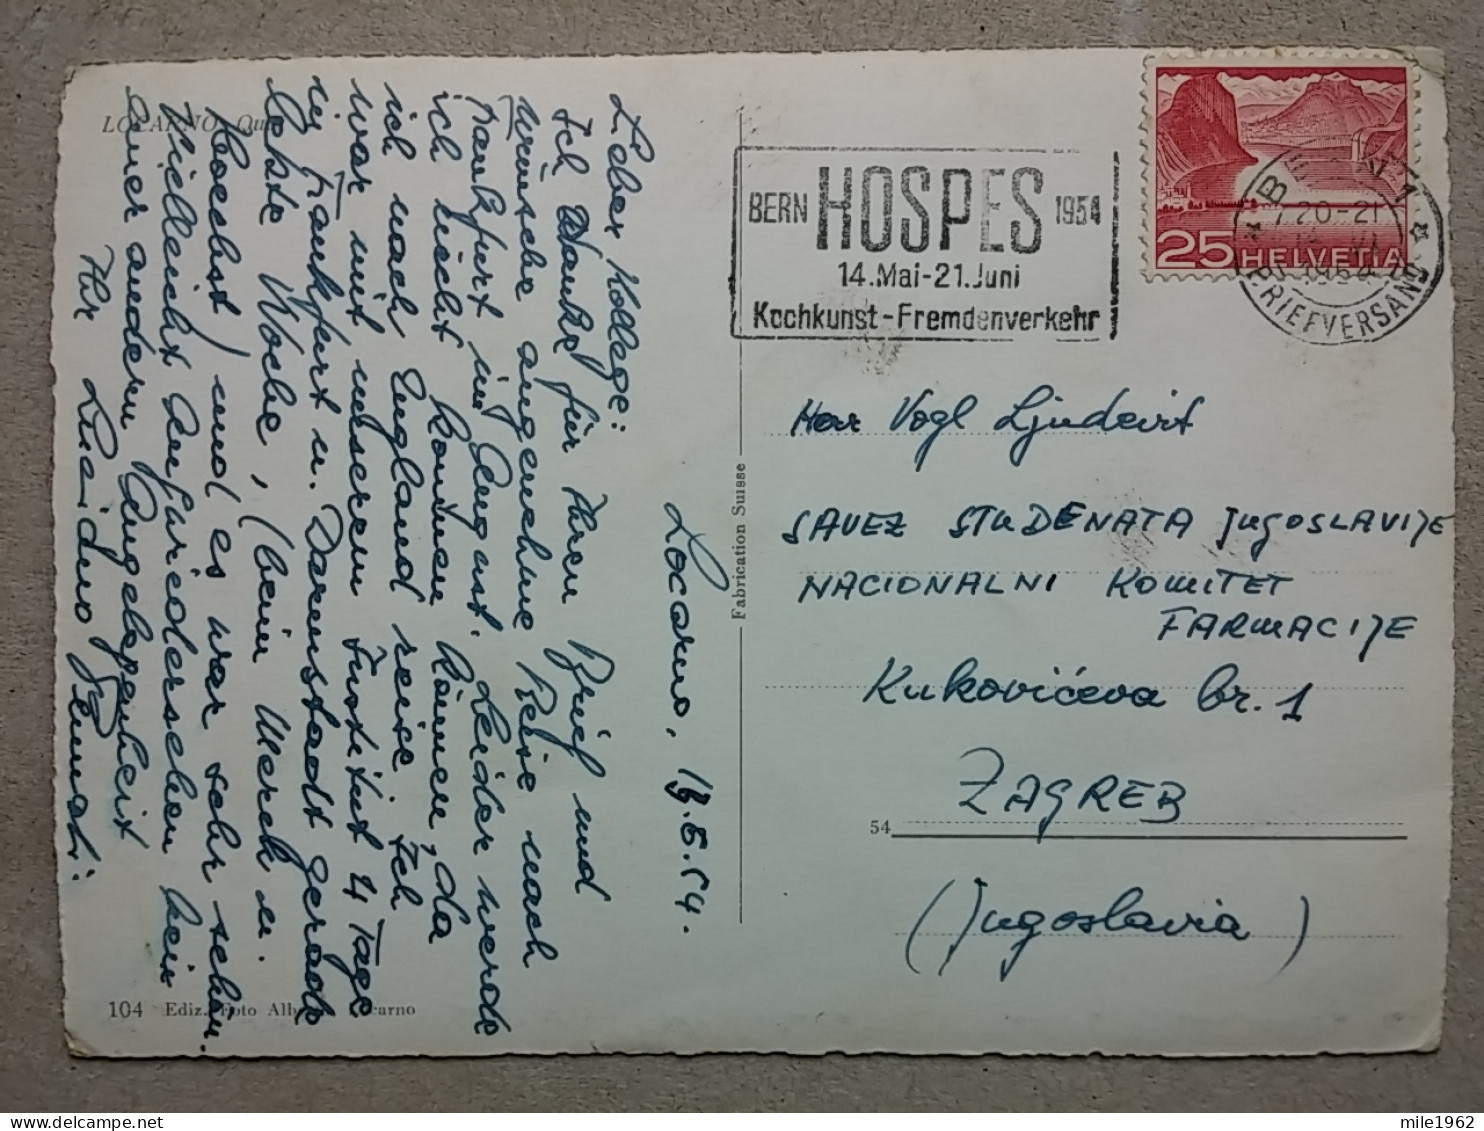 LOCARNO
Locarno, 13.6.54.
Lieber Kollege:
Ich Danke für Ihren Brief und
wünsche angenehme Reise nach
Frankfurt im August. Leider werde
ich nicht kommen können, da
ich nach England reise. Ich
war mit unserem Institut 4 Tage
in Frankfurt u. Darmstadt gerade
letzte Woche, (beim Merck u.
Hoechst) und es war sehr schön.
Vielleicht auf Wiedersehen bei
einer andern Angelegenheit
Ihr
104 Ediz. Foto
Fabrication Suisse
BERN HOSPES 1954
14.Mai-21.Juni
Kochkunst-Fremdenverkehr
25 HELVETIA
BERN 1
20-21
1954
BRIEFVERSAND
Herr Vogl Ljudevit
SAVEZ STUDENATA JUGOSLAVIJE
NACIONALNI KOMITET
FARMACIJE
Kukovićeva br. 1
ZAGREB
54
(Jugoslavia)
mile1962